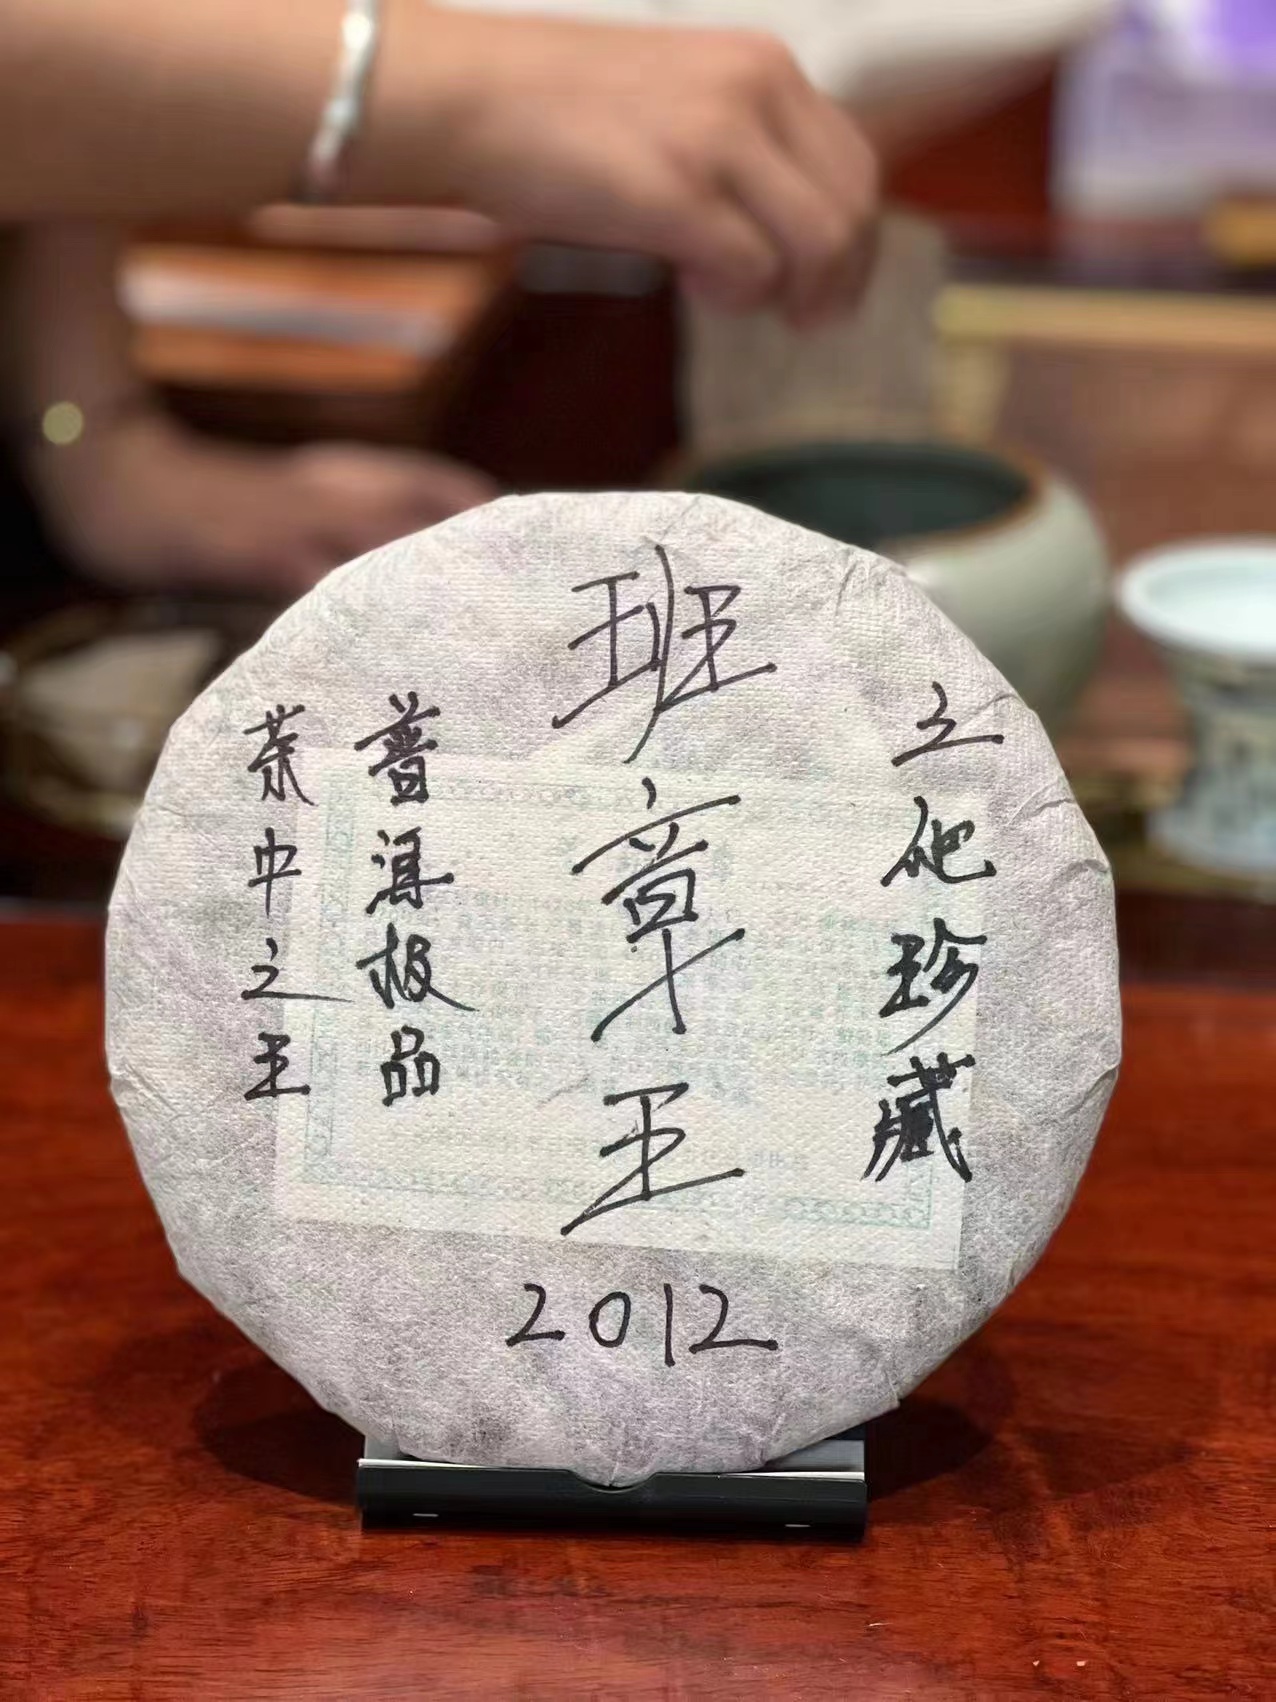 珍藏
班章王
普洱极品
茶中之王
2012